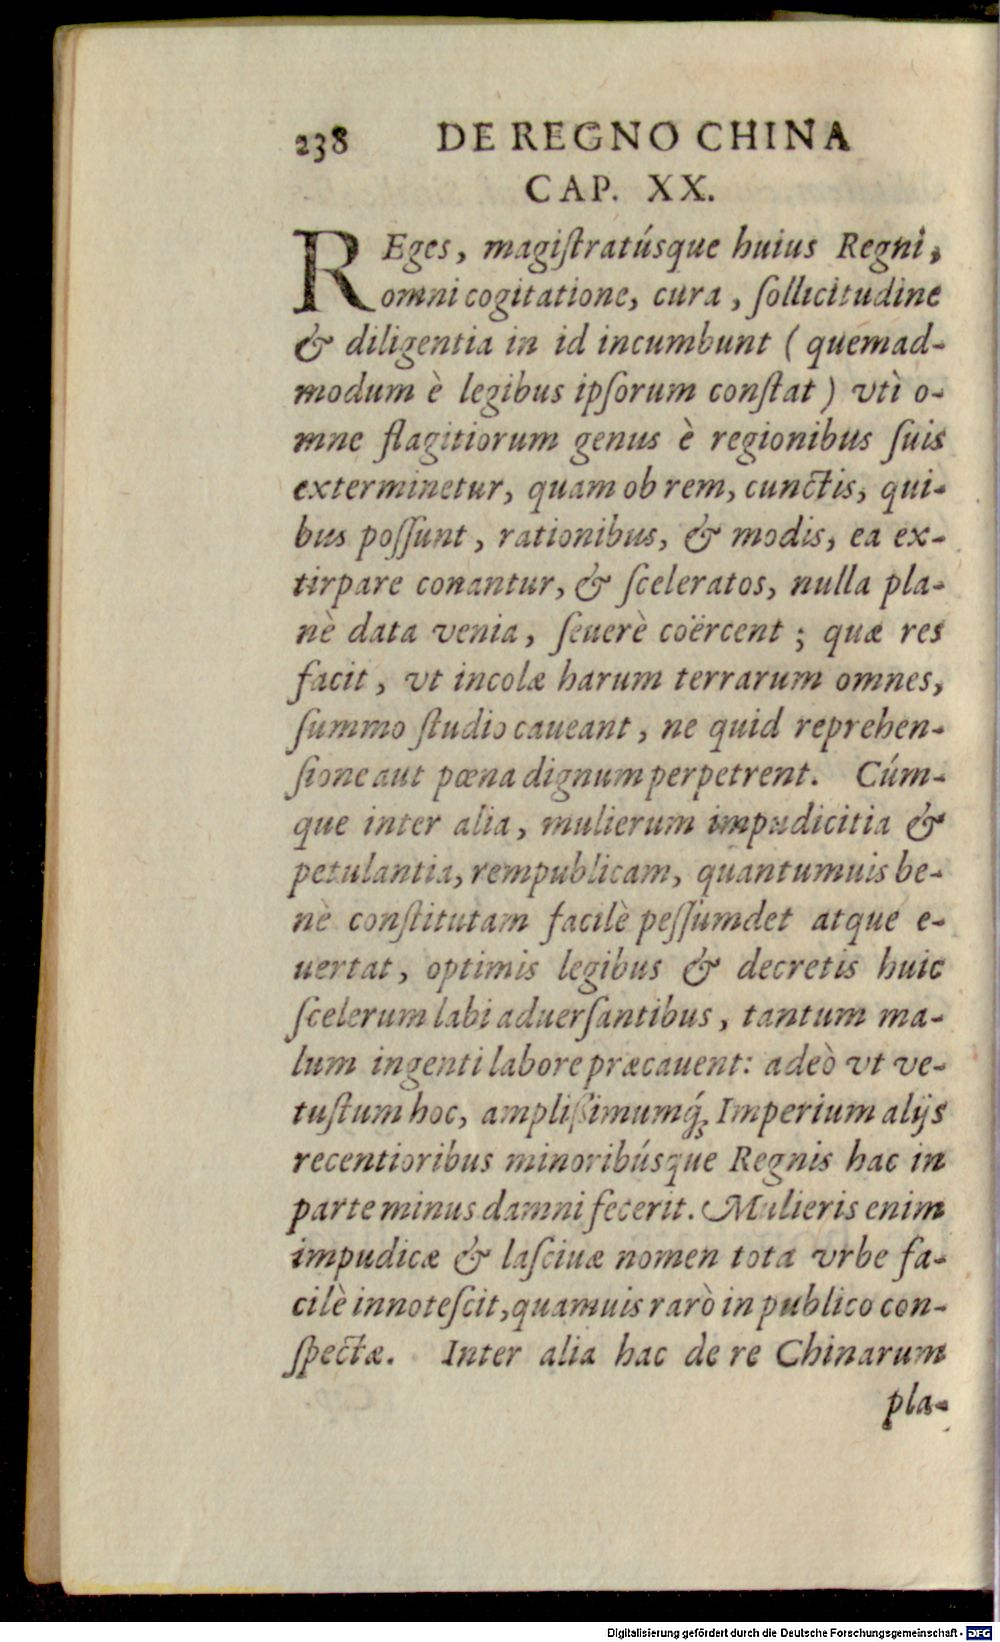 238 DE REGNO CHINA
CAP. XX.
REges, magiſtratúsque huius Regni,
omni cogitatione, cura, ſollicitudine
& diligentia in id incumbunt (quemad-
modum è legibus ipſorum conſtat) vtì o-
mne flagitiorum genus è regionibus ſuis
exterminetur, quam ob rem, cunctis, qui-
bus poſſunt, rationibus, & modis, ea ex-
tirpare conantur, & ſceleratos, nulla pla-
nè data venia, ſeuerè coërcent; quæ res
facit, vt incolæ harum terrarum omnes,
ſummo ſtudio caueant, ne quid reprehen-
ſione aut pœna dignum perpetrent. Cúm-
que inter alia, mulierum impudicitia &
petulantia, rempublicam, quantumuis be-
nè conſtitutam facilè peſſumdet atque e-
uertat, optimis legibus & decretis huic
ſcelerum labi aduerſantibus, tantum ma-
lum ingenti labore præcauent: adeò vt ve-
tuſtum hoc, ampliſsimumq́ꝫ Imperium alijs
recentioribus minoribúsque Regnis hac in
parte minus damni fecerit. Mulieris enim
impudicæ & laſciuæ nomen tota vrbe fa-
cilè innoteſcit, quamuis rarò in publico con-
ſpectæ. Inter alia hac de re Chinarum
pla-
Digitalisierung gefördert durch die Deutsche Forschungsgemeinschaft - DFG